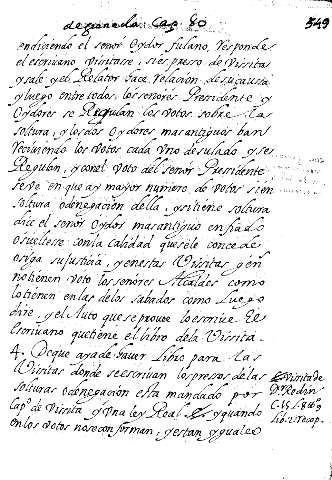 de granada. Cap. 80 549
endiciendo el señor oydor fulano, Responde
el escriuano, visitase, si es preso de Visita
y sale y el Relator saca Relacion de su causa
y luego entre todos los señores Presidente y
Oydores se Regulan los votos sobre la
soltura, y los dos oydores mas antiguos ban
Reciuiendo los votos cada vno de su lado y se
Regulan, y con el voto del señor Presidente
se ve en que ay mayor numero de votos si en
soltura o denegacion della, y si tiene soltura
dice el señor oydor mas antiguo en fiado
o sueltese con la calidad que se le concede
oiga su justicia, y en estas Visitas
no tienen voto los señores Alcaldes como
lo tienen en las de los sabados como Luego
dire, y el Auto que se prouee lo escriue El
escriuano que tiene el libro de la Vissita.
4. De que aya de hauer Libro para las
Visitas donde se escriuan los presos de las
solturas o denegacion esta mandado por
Capº. de Visita, y Vna ley Real y quando
en los votos no se conforman, y estan yguales
Visita de
Dn. Rodrigo
C. 15.
lib. 2. recop.